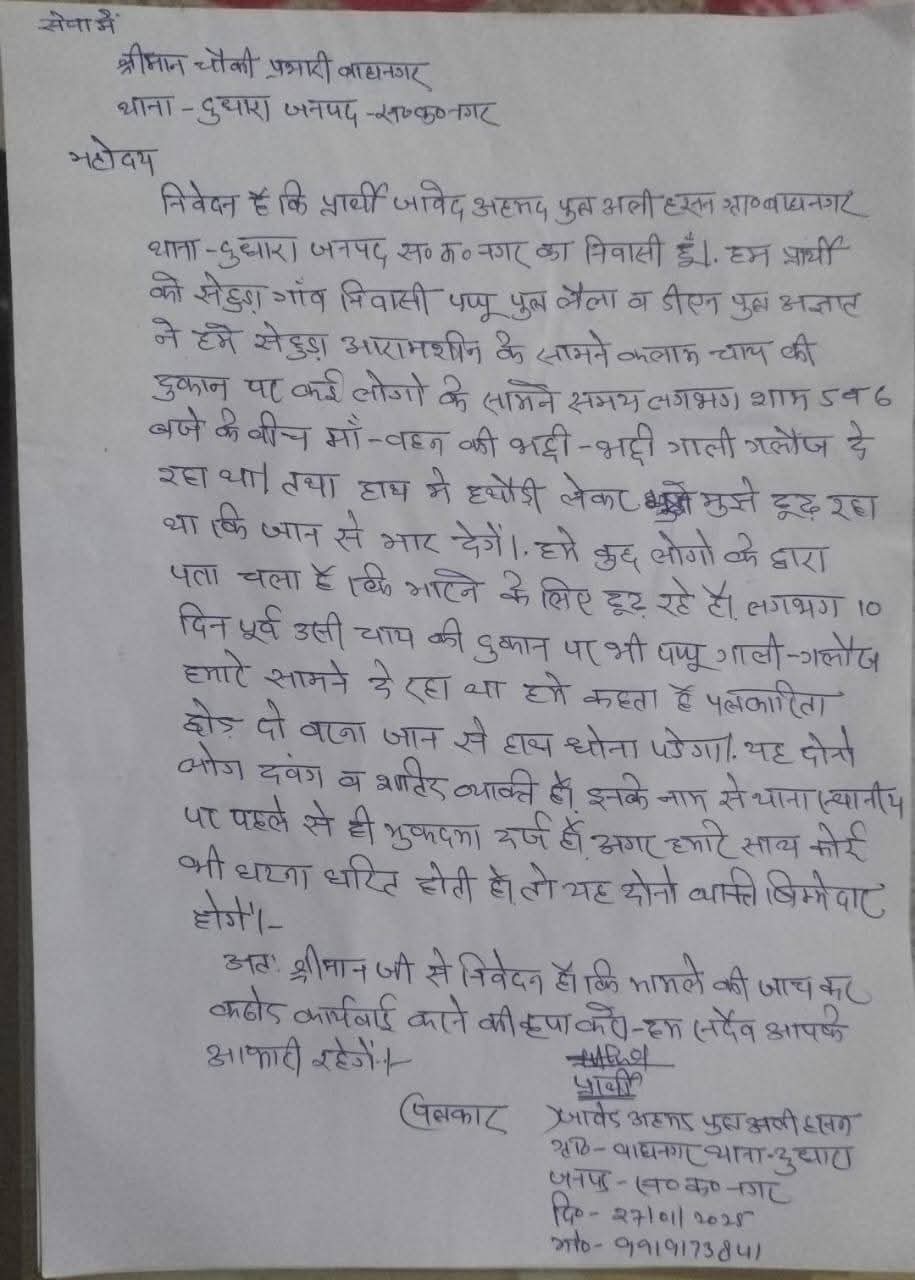 सेवा में
श्रीमान चौकी प्रभारी बाघनगर
थाना - दुधारा जनपद - स०क०नगर
महोदय
निवेदन है कि प्रार्थी जावेद अहमद पुत्र अली हसन ग्रा०बाघनगर
थाना - दुधारा जनपद स० क० नगर का निवासी हूँ। हम प्रार्थी
को सेहुड़ा गाँव निवासी पप्पू पुत्र लैला व डीएन पुत्र अज्ञात
ने हमे सेहुड़ा आरामशीन के सामने कलाम चाय की
दुकान पर कई लोगो के सामने समय लगभग शाम 5 व 6
बजे के बीच माँ - बहन की भद्दी - भद्दी गाली गलौज दे
रहा था। तथा हाथ मे हथौड़ी लेकर मुझे ढूढ़ रहा
था कि जान से मार देगें।. हमे कुछ लोगो के द्वारा
पता चला है कि मारने के लिए ढूढ़ रहे है। लगभग 10
दिन पूर्व उसी चाय की दुकान पर भी पप्पू गाली - गलौज
हमारे सामने दे रहा था हमे कहता है पत्रकारिता
छोड़ दो वरना जान से हाथ धोना पड़ेगा।. यह दोनो
लोग दबंग व शातिर व्यक्ति है। इनके नाम से थाना स्थानीय
पर पहले से ही मुकदमा दर्ज है। अगर हमारे साथ कोई
भी घटना घटित होती है। तो यह दोनो व्यक्ति जिम्मेदार
होगें।-
अतः श्रीमान जी से निवेदन है। कि मामले की जाच कर
कठोर कार्यवाई करने की कृपा करे।- हम सदैव आपके
आभारी रहेगें।-
प्रार्थी
पत्रकार जावेद अहमद पुत्र अली हसन
ग्रा०- बाघनगर थाना - दुधारा
जनपद - स० क० नगर
दि० - 27/01/2025
मो० - 9919173841